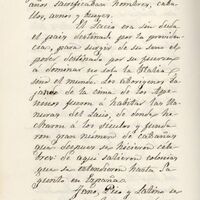 años sacrificaban hombres, caba-
llos, asnos y bueyes.
El Lacio era sin duda
el pais destinado por la providen-
cia, para surgir de su seno el
poder destinado por su fuerza
á dominar no solo la Italia
sino el mundo. Los aborígenes ba-
jando de la cima de los Ape-
ninos fueron á habitar las lla-
nuras del Lacio, de donde
echaron á los sículos y funda-
ron gran número de cabañas
que despues se hicieron céle-
bres: de aquí salieron colonias
que se estendieron hasta
en España.
Jano, Pico y Latino se